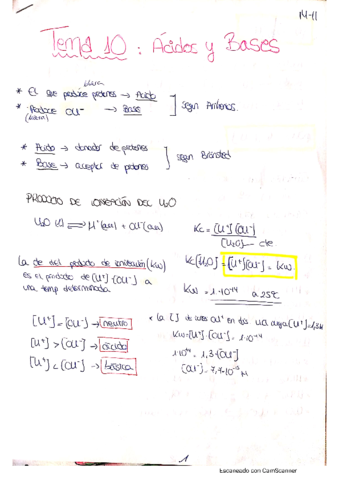 14-11
Tema 10: Ácidos y Bases
libera
* El que produce protones → Ácido
* Produce OH⁻ → Base
(libera)
] según Arrhenius
* Ácido → donador de protones
* Base → aceptor de protones
] según Brönsted
PRODUCTO DE IONIZACIÓN DEL H₂O
H₂O (l) ⇌ H⁺(aq) + OH⁻(aq)
Kc = [H⁺][OH⁻]
[H₂O] → cte
Kc[H₂O] = [H⁺][OH⁻] = Kw
La cte del producto de ionización (Kw)
es el producto de [H⁺]·[OH⁻] a
una temp determinada.
Kw = 1·10⁻¹⁴ a 25℃
[H⁺] = [OH⁻] → neutro
[H⁺] > [OH⁻] → ácido
[H⁺] < [OH⁻] → básica
Kw = [H⁺]·[OH⁻] = 1·10⁻¹⁴
1·10⁻¹⁴ = 1,3·[OH⁻]
[OH⁻] = 7,7·10⁻¹⁵ M
1
Escaneado con CamScanner